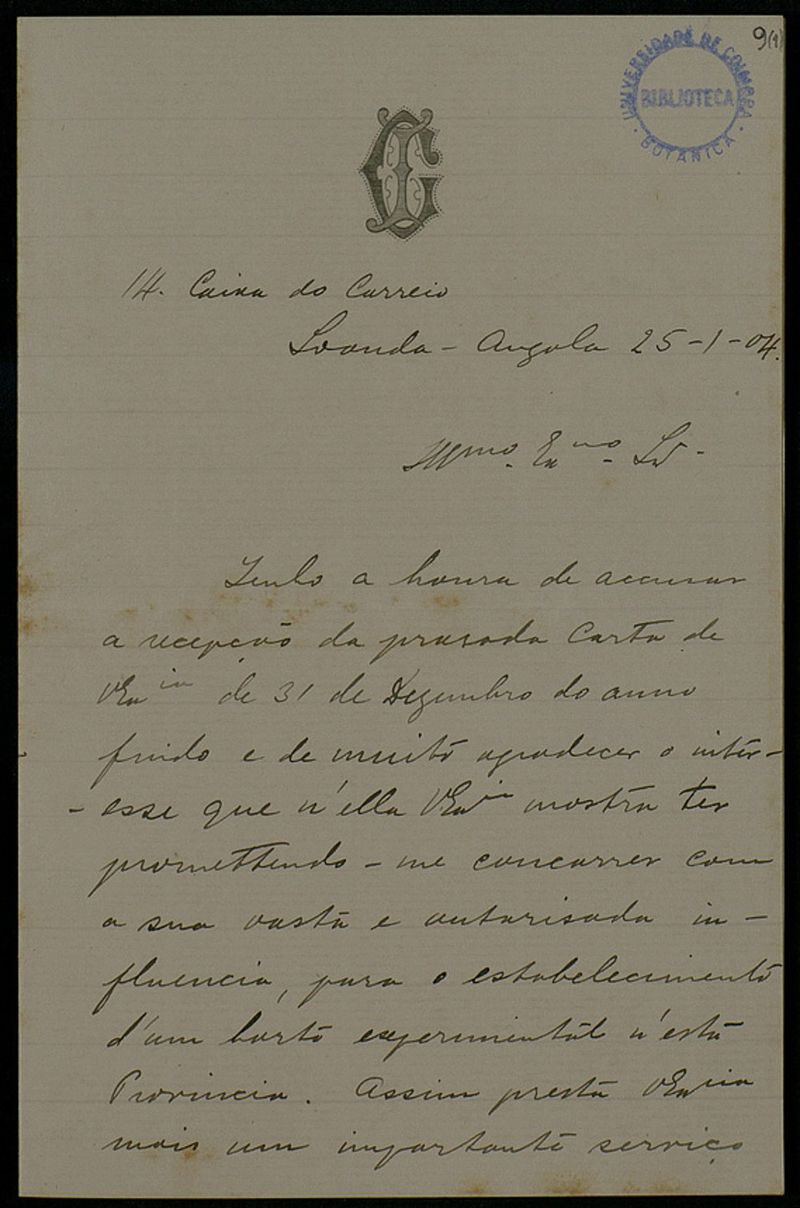 9(1)
UNIVERSIDADE DE COIMBRA
BIBLIOTECA
BOTANICA
14. Caixa do Correio
Loanda - Angola 25-1-04.
Illmo. Exmo. Sr.
Tenho a honra de accusar
a recepção da presada Carta de
VExcia de 31 de Dezembro do anno
findo e de muito agradecer o inter-
-esse que n'ella VExcia mostra ter
promettendo-me concorrer com
a sua vasta e autorisada in-
fluencia, para o estabelecimento
d'um horto experimental n'esta
Provincia. Assim presta VExcia
mais um importante serviço